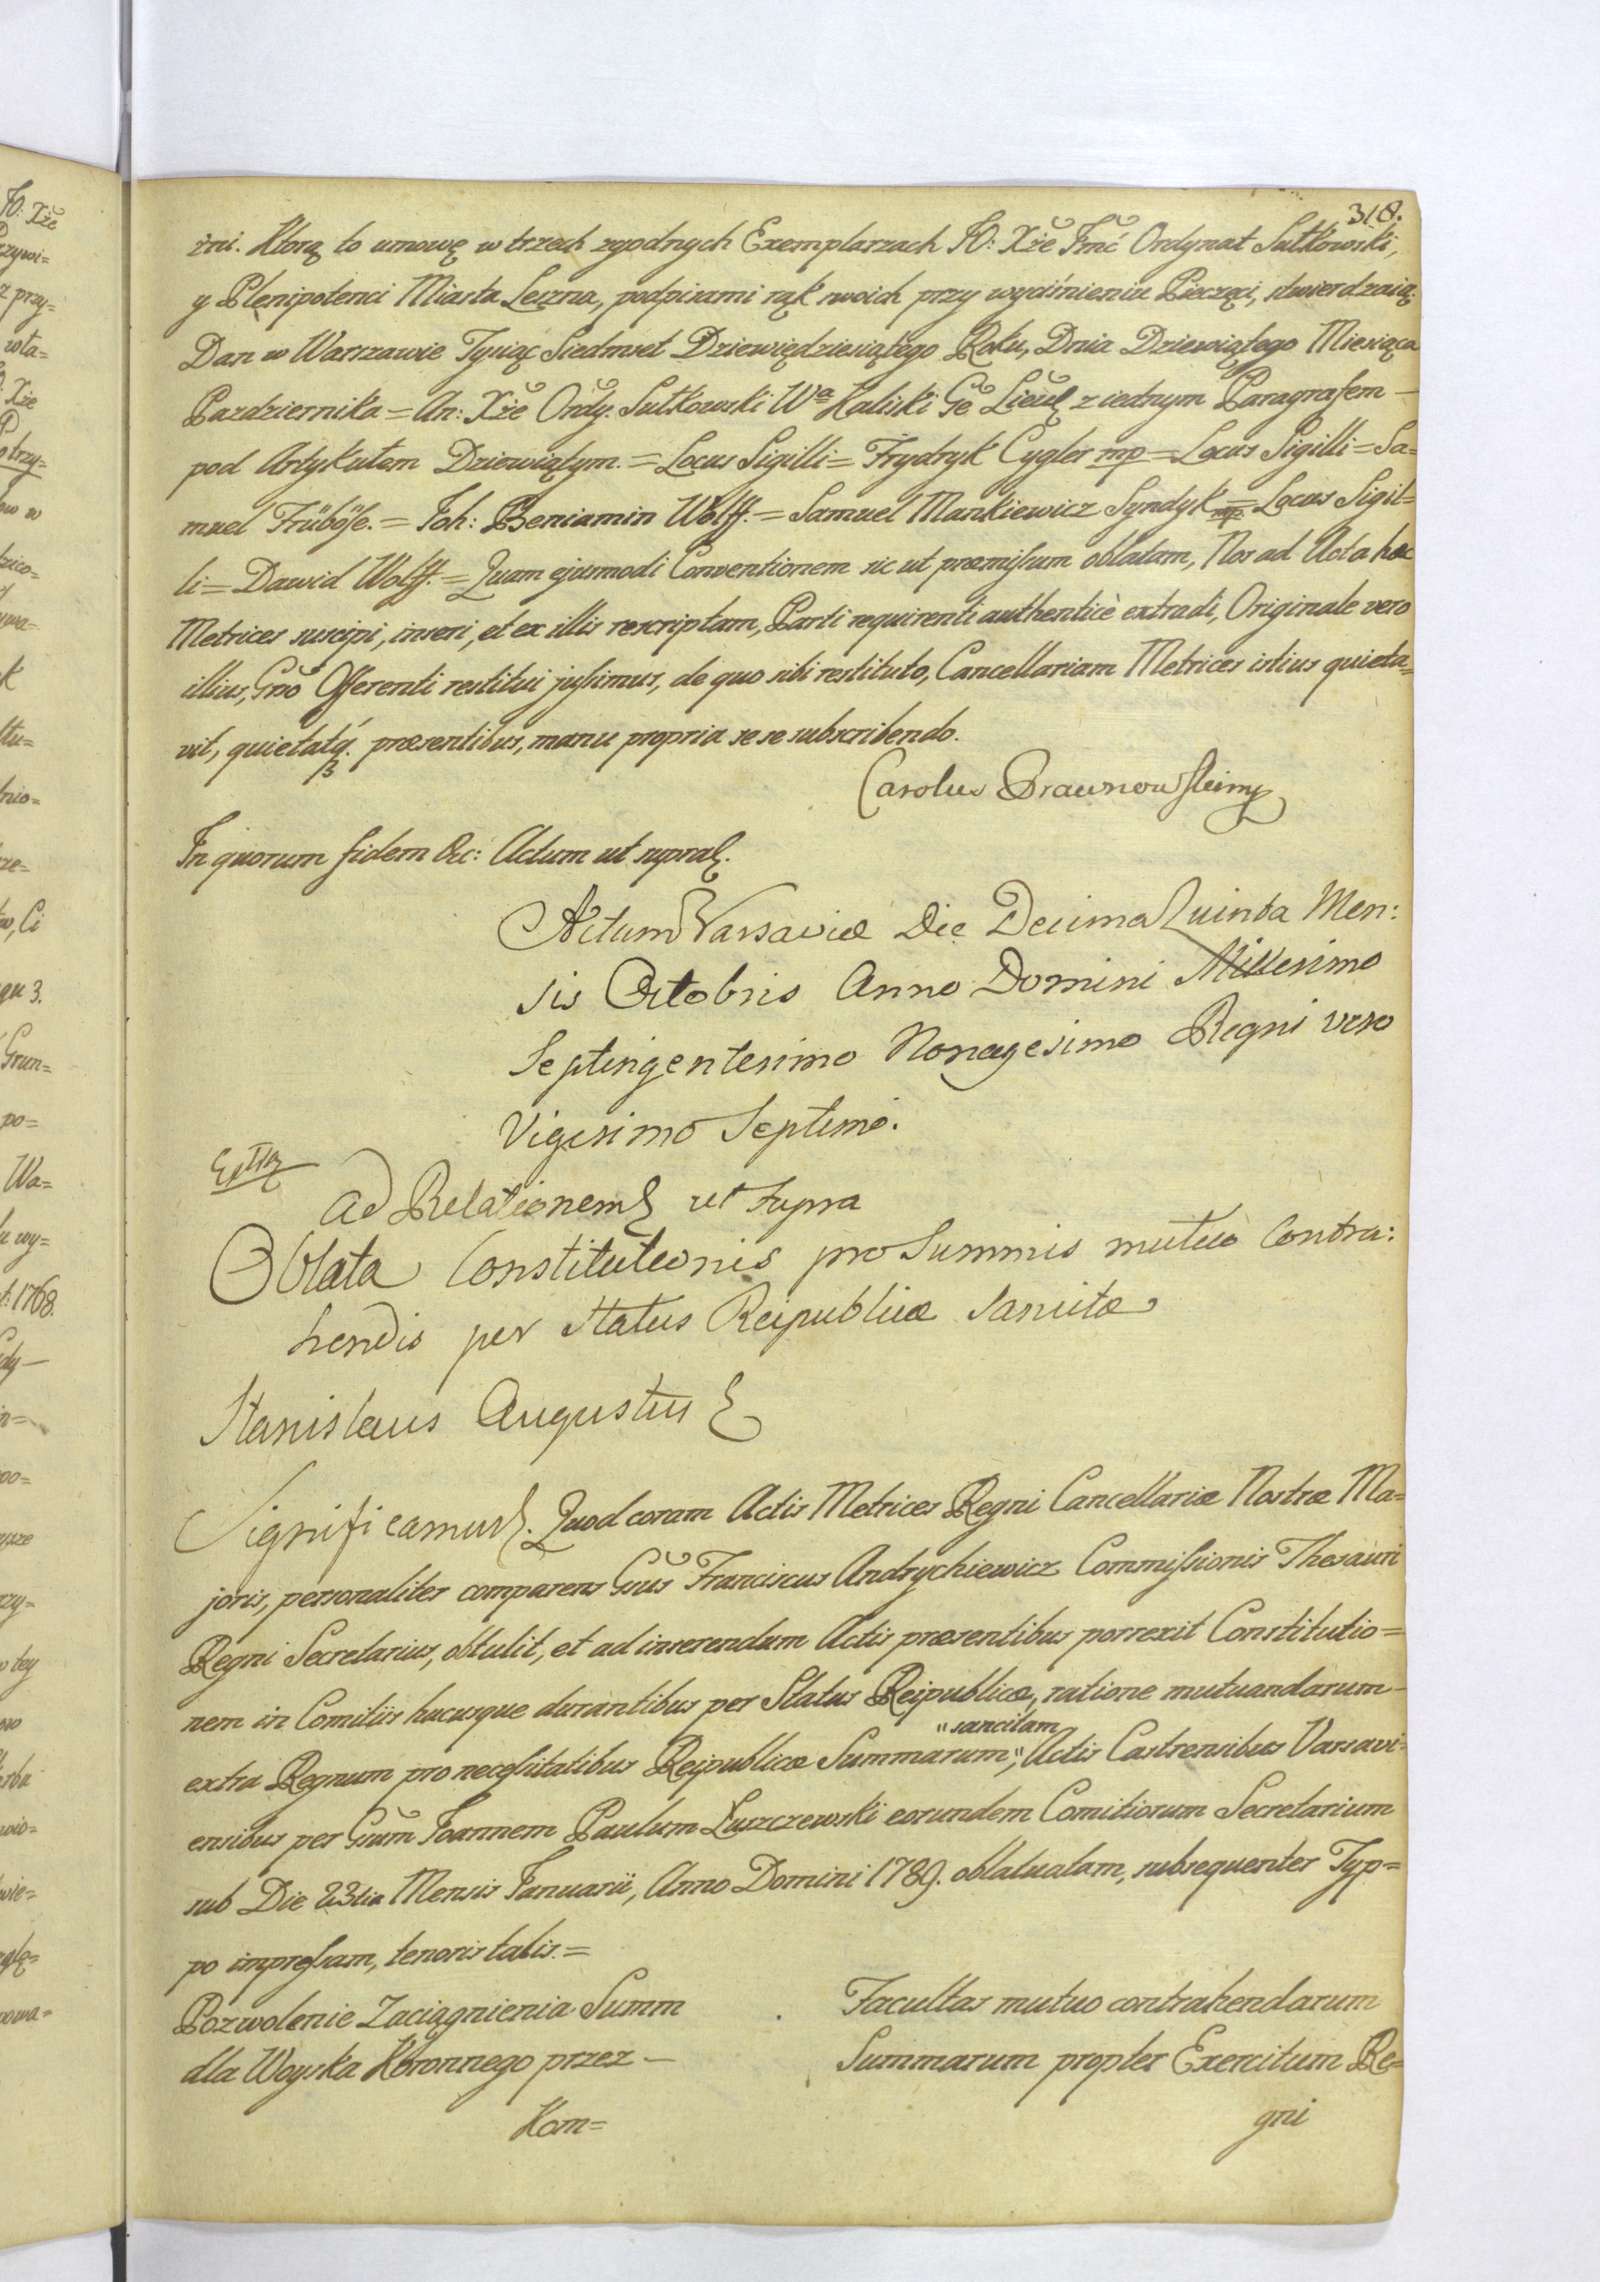 318.
żni. Którą to umowę w trzech zgodnych Exemplarzach JO: Xże Jmć Ordynat Sułkowski,
y Plenipotenci Miasta Leszna, podpisami rąk swoich przy wyciśnieniu Pieczęci, stwierdzaią.
Dan w Warszawie Tysiąc Siedmset Dziewiędziesiątego Roku, Dnia Dziewiątego Miesiąca
Pazdziernika = An: Xże Ordy. Sułkowski Wa Kaliski Ge Lieut z iednym Paragrafem —
pod Artykułem Dziewiątym. = Locus Sigilli = Frydryk Cygler mp = Locus Sigilli = Sa=
muel Früböse. = Joh: Beniamin Wolff. = Samuel Mankiewicz Syndyk mp = Locus Sigil=
li = Dawid Wolff. = Quam ejusmodi Conventionem sic ut præmissum oblatam, Nos ad Acta hæc
Metrices suscipi, inseri, et ex illis rescriptam, Parti requirenti authenticè extradi, Originale vero
illius, Gnō Offerenti restitui jussimus, de quo sibi restituto, Cancellariam Metrices istius quieta=
vit, quietatq. præsentibus, manu propria se se subscribendo.
Carolus Braunow
In quorum fidem &c: Actum ut supra
Actum Varsaviæ Die Decima Quinta Men:
sis Octobris Anno Domini Millesimo
Septingentesimo Nonagesimo Regni vero
Vigesimo Septimo.
Ad Relationem ut supra
Oblata Constitutionis pro Summis mutuo Contra:
hendis per Status Reipublicæ sancitæ
Stanislaus Augustus
Significamus. Quod coram Actis Metrices Regni Cancellariæ Nostræ Ma=
joris, personaliter comparens Gnūs Franciscus Andrychiewicz Commissionis Thesauri
Regni Secretarius, obtulit, et ad inserendum Actis præsentibus porrexit Constitutio=
nem in Comitiis hucusque durantibus per Status Reipublicæ, ratione mutuandarum —
"sancitam
extra Regnum pro necessitatibus Reipublicæ Summarum," Actis Castrensibus Varsavi=
ensibus per Gnūm Joannem Paulum Łuszczewski eorundem Comitiorum Secretarium
sub Die 23tia Mensis Januarii, Anno Domini 1789. oblatuatam, subsequenter Typ=
po impressam, tenoris talis. =
Pozwolenie Zaciągnienia Summ
dla Woyska Koronnego przez —
Kom=
Facultas mutuo contrahendarum
Summarum propter Exercitum Re=
gni